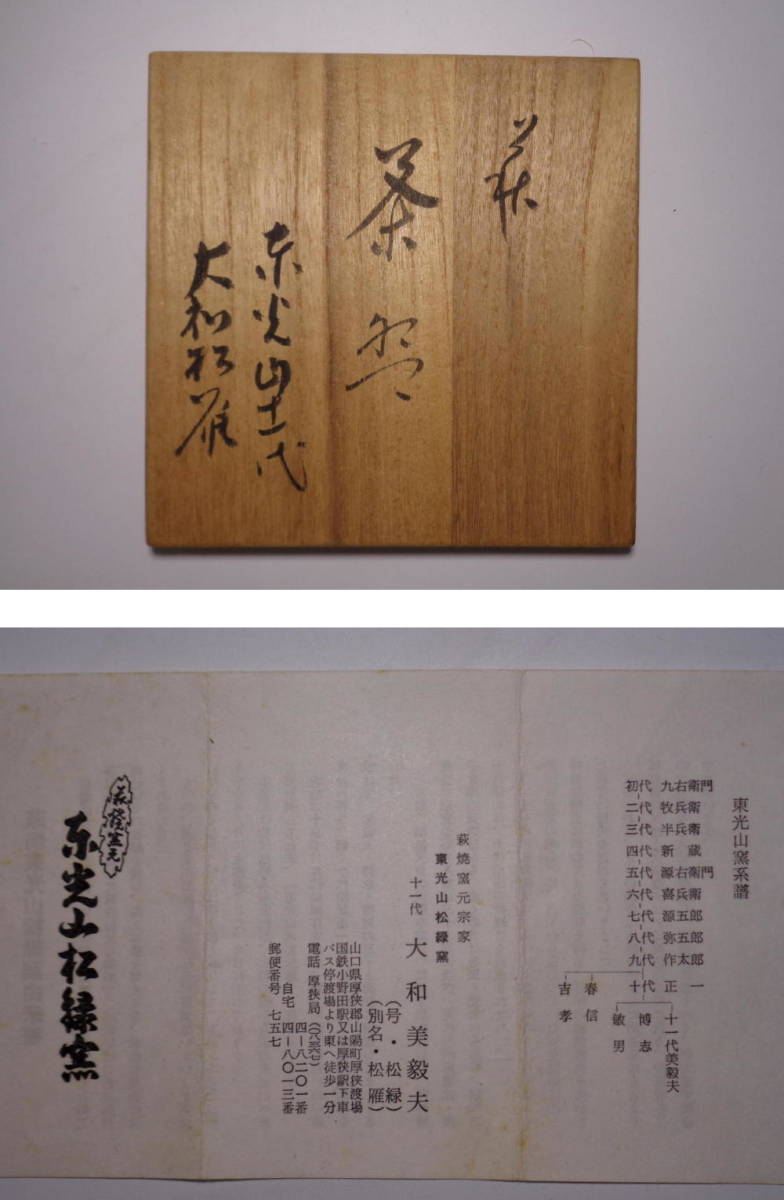 萩
茶盌
东光山十一代
大和松雁
東光山窯系譜
初代 九右衛門
二代 牧兵衛
三代 半兵衛
四代 新蔵
五代 源右衛門
六代 喜兵衛
七代 源五郎
八代 弥五郎
九代 作太郎
十代 正一
春信
吉孝
十一代美毅夫
博志
敏男
萩焼窯元宗家
東光山松緑窯
十一代 大和美毅夫
(号・松緑)
(別名・松雁)
山口県厚狭郡山陽町厚狭渡場
国鉄小野田駅又は厚狭駅下車
バス停渡場より東へ徒歩一分
電話 厚狭局(〇八三六七)
四-八二〇一番
自宅 四-八〇一三番
郵便番号 七五七
萩焼窯元
东光山松緑窯